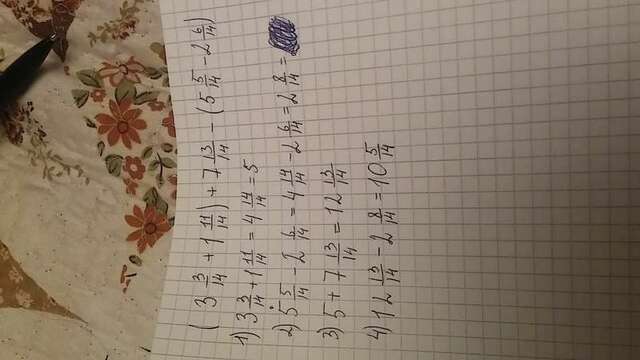 (3 3/14 + 1 11/14) + 7 13/14 - (5 5/14 - 2 6/14)
1) 3 3/14 + 1 11/14 = 4 14/14 = 5
2) 5 5/14 - 2 6/14 = 4 14/14 - 2 6/14 = 2 8/14 =
3) 5 + 7 13/14 = 12 13/14
4) 12 13/14 - 2 8/14 = 10 5/14